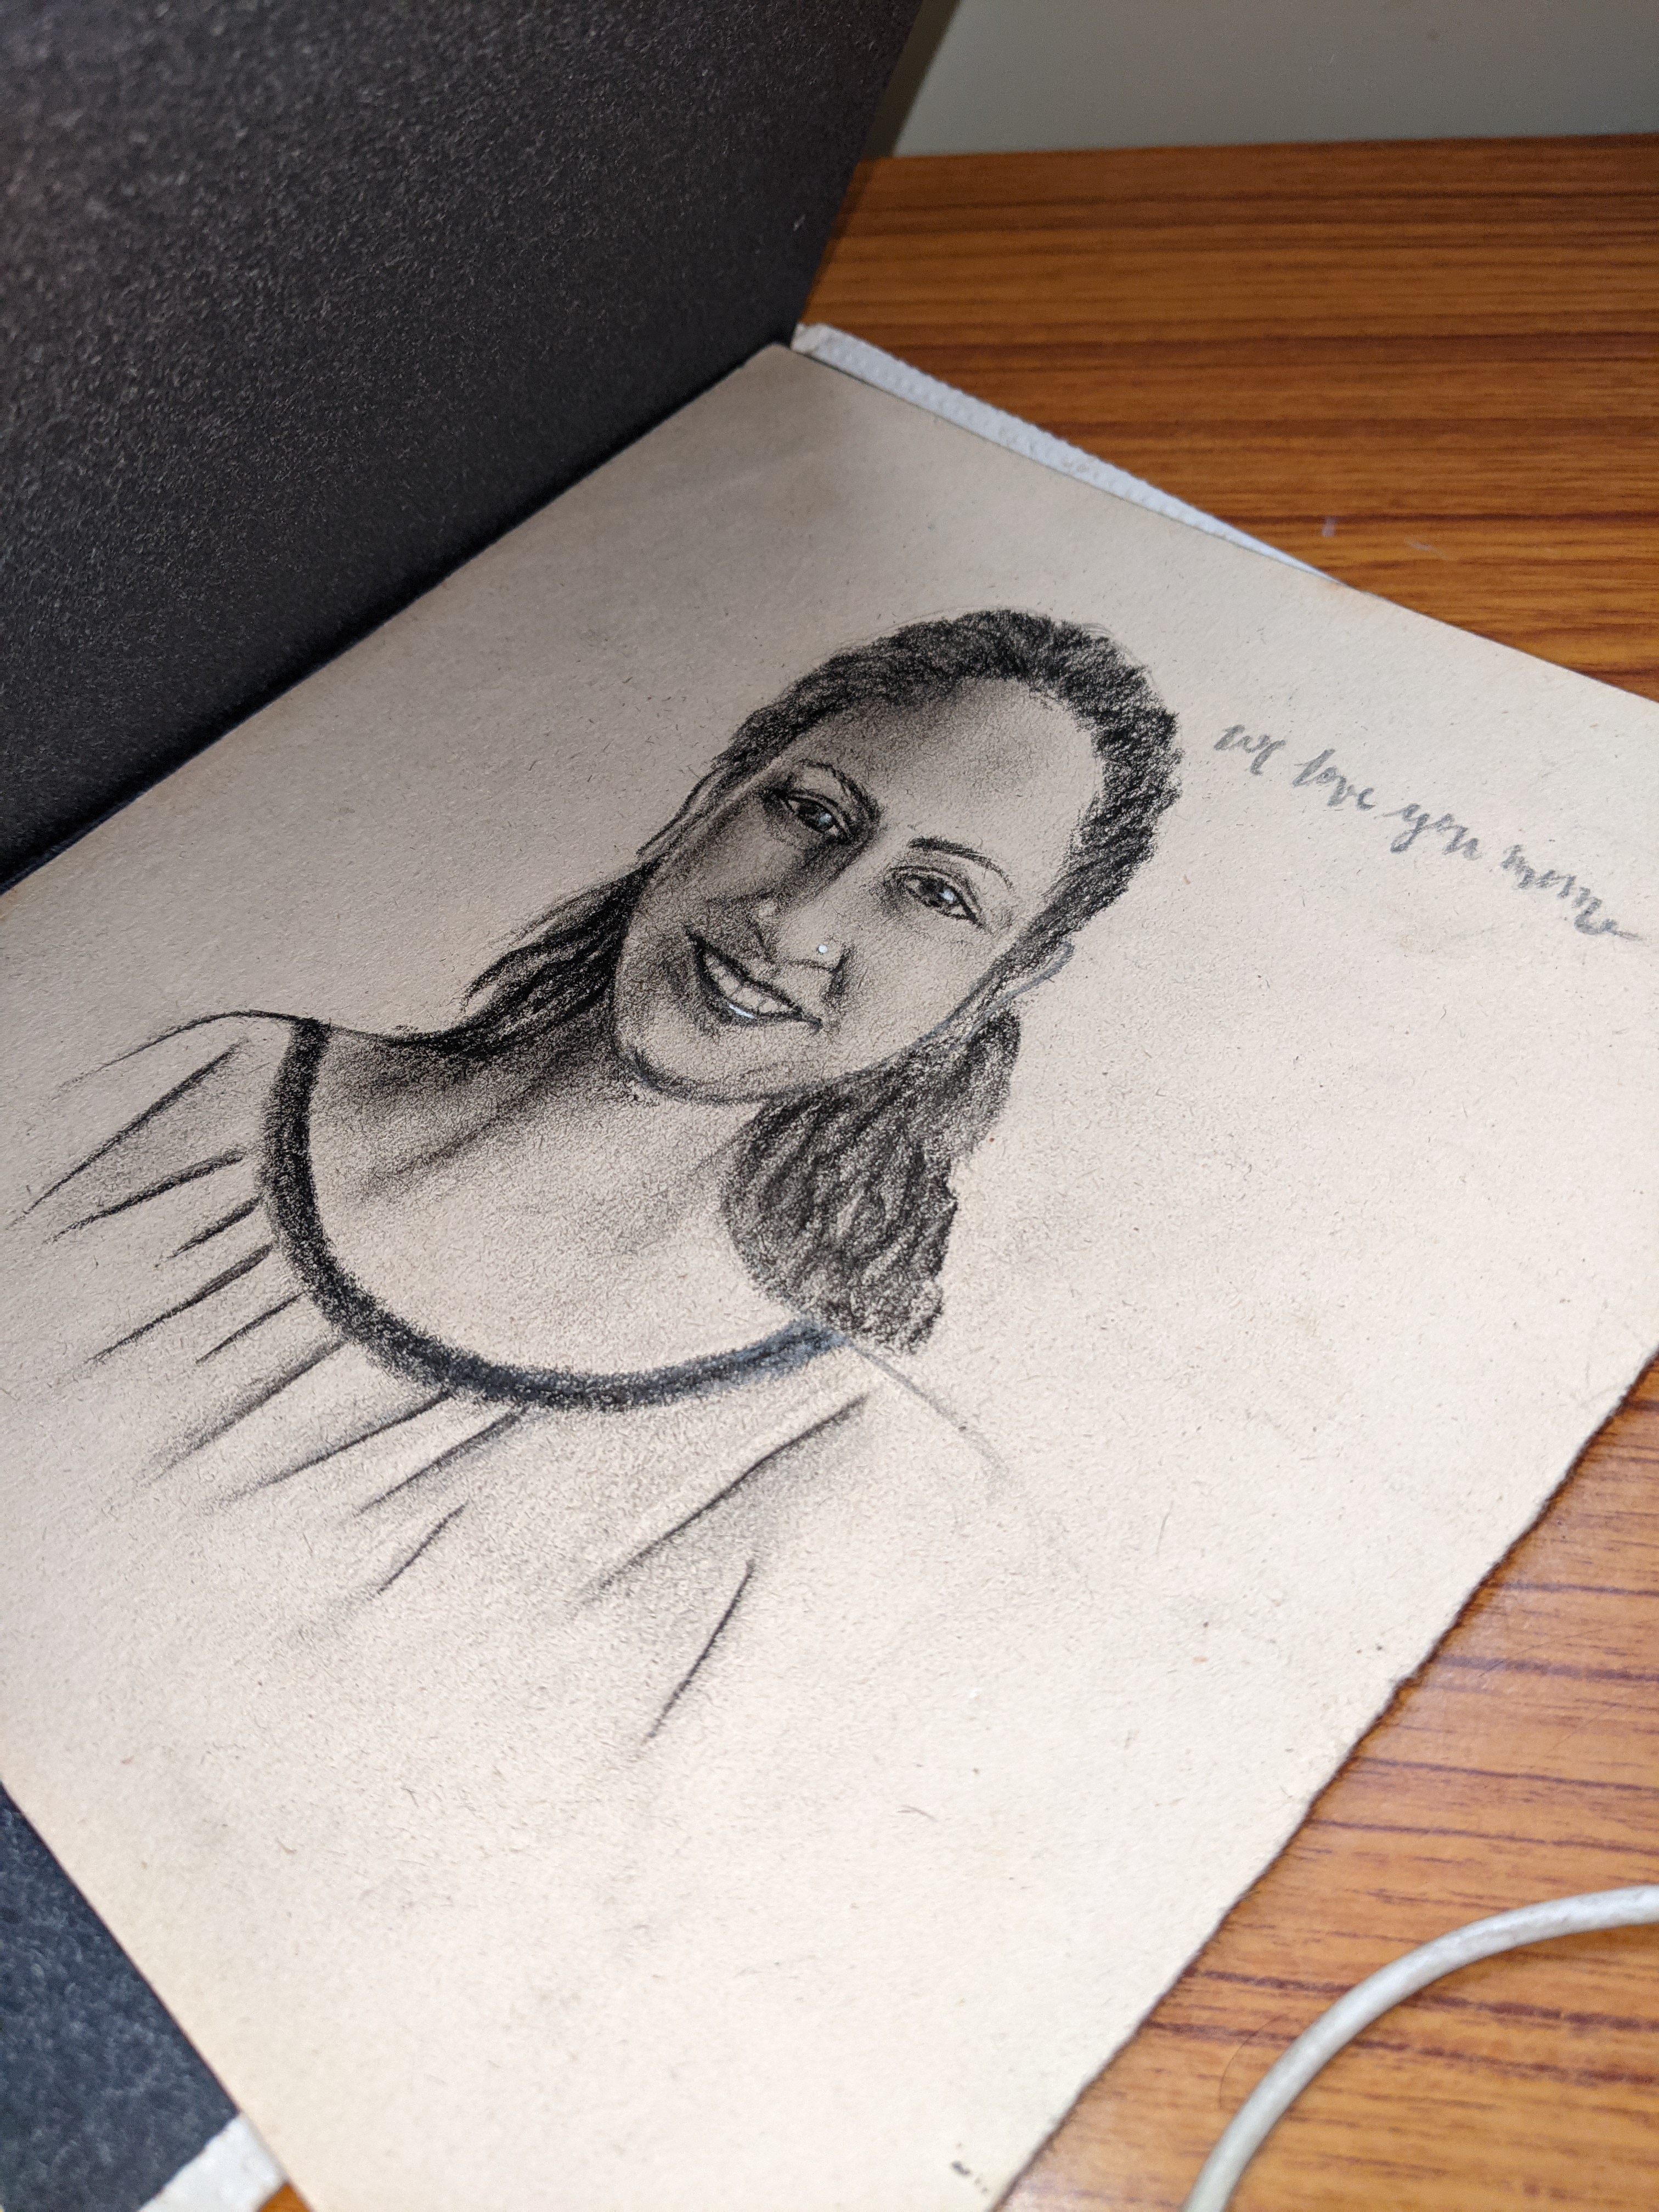 we love you mom